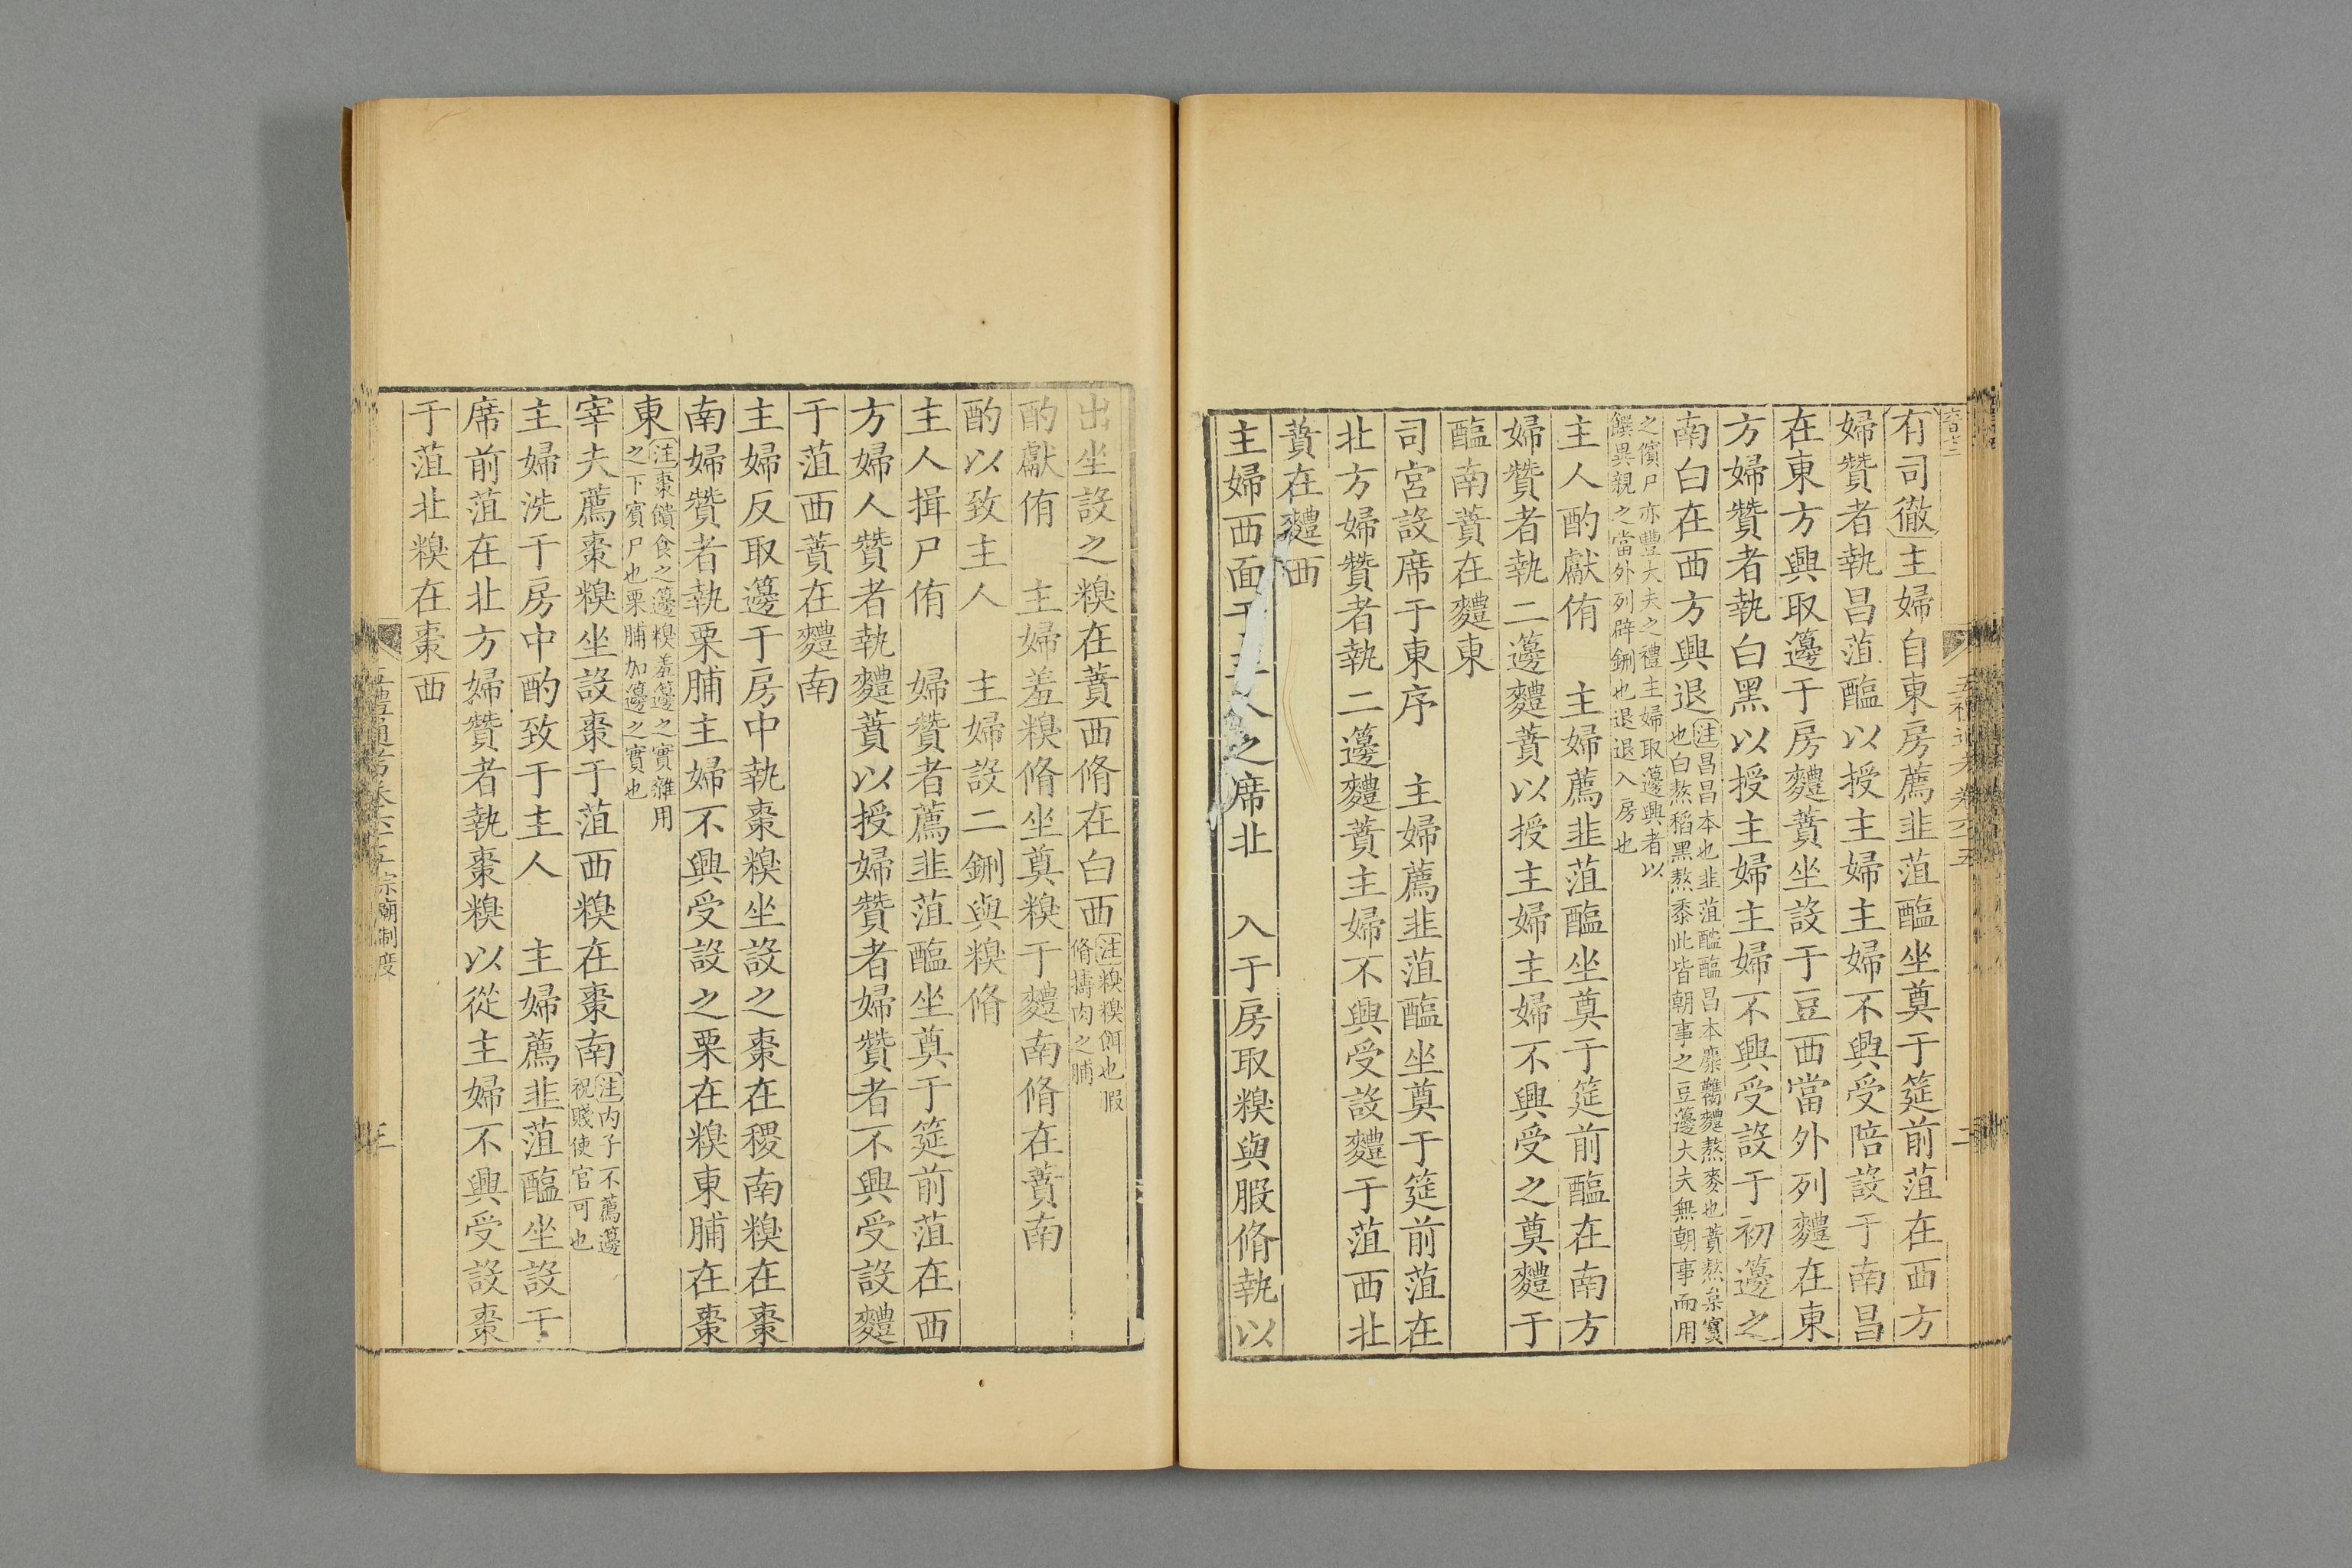 有司徹主婦自東房薦韭菹醢坐奠于筵前菹在西方
婦贊者執昌菹醢以授主婦主婦不興受陪設于南昌
在東方興取籩于房麷蕡坐設于豆西當外列麷在東
方婦贊者執白黑以授主婦主婦不興受設于初籩之
南白在西方興退注昌昌本也韭菹醓醢昌本麋臡麷熬麥也蕡熬枲實
也白熬稻黑熬黍此皆朝事之豆籩大夫無朝事而用
之儐尸亦豐大夫之禮主婦取籩興者以
饌異親之當外列辟鉶也退退入房也
主人酌獻侑　主婦薦韭菹醢坐奠于筵前醢在南方
婦贊者執二籩麷蕡以授主婦主婦不興受之奠麷于
醢南蕡在麷東
司宮設席于東序　主婦薦韭菹醢坐奠于筵前菹在
北方婦贊者執二籩麷蕡主婦不興受設麷于菹西北
蕡在麷西
主婦西面于主人之席北　入于房取糗與腶脩執以
出坐設之糗在蕡西脩在白西注糗糗餌也腶
脩擣肉之脯
酌獻侑　主婦羞糗脩坐奠糗于麷南脩在蕡南
酌以致主人　主婦設二鉶與糗脩
主人揖尸侑　婦贊者薦韭菹醢坐奠于筵前菹在西
方婦人贊者執麷蕡以授婦贊者婦贊者不興受設麷
于菹西蕡在麷南
主婦反取籩于房中執棗糗坐設之棗在稷南糗在棗
南婦贊者執栗脯主婦不興受設之栗在糗東脯在棗
東注棗饋食之籩糗羞籩之實雜用
之下賓尸也栗脯加籩之實也
宰夫薦棗糗坐設棗于菹西糗在棗南注內子不薦籩
祝賤使官可也
主婦洗于房中酌致于主人　主婦薦韭菹醢坐設于
席前菹在北方婦贊者執棗糗以從主婦不興受設棗
于菹北糗在棗西
宗廟制度
三